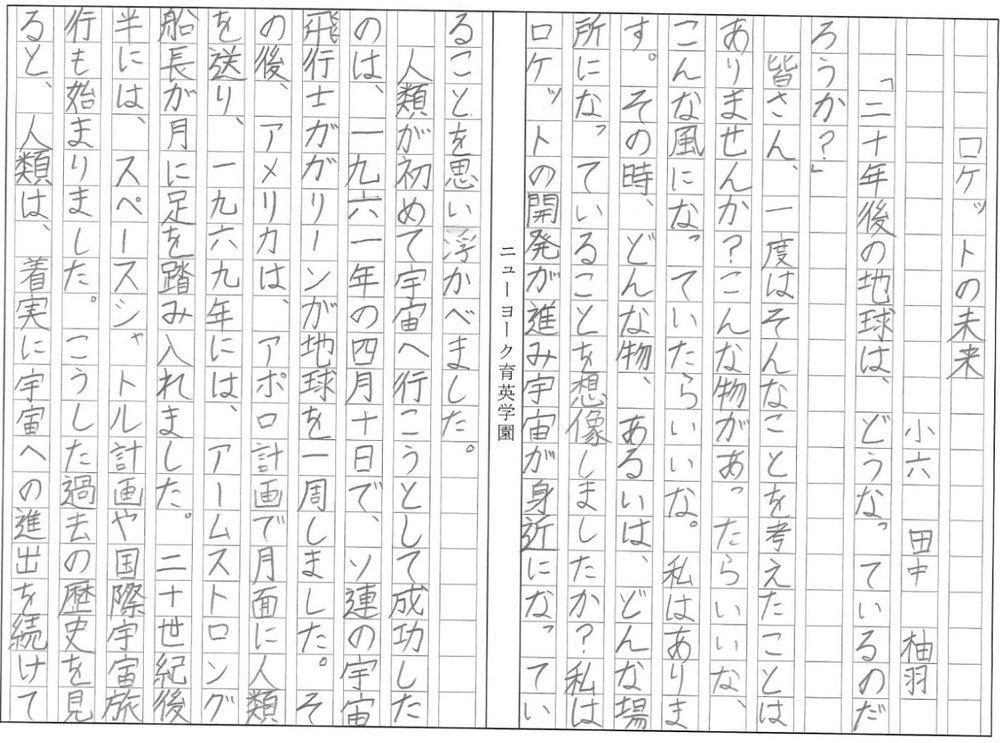 ロケットの未来
小六 田中 柚羽
「二十年後の地球は、どうなっているのだ
ろうか？」
皆さん、一度はそんなことを考えたことは
ありませんか？こんな物があったらいいな、
こんな風になっていたらいいな。私はありま
す。その時、どんな物、あるいは、どんな場
所になっていることを想像しましたか？私は
ロケットの開発が進み宇宙が身近になってい
ニューヨーク育英学園
ることを思い浮かべました。
人類が初めて宇宙へ行こうとして成功した
のは、一九六一年の四月十日で、ソ連の宇宙
飛行士ガガリーンが地球を一周しました。そ
の後、アメリカは、アポロ計画で月面に人類
を送り、一九六九年には、アームストロング
船長が月に足を踏み入れました。二十世紀後
半には、スペースシャトル計画や国際宇宙旅
行も始まりました。こうした過去の歴史を見
ると、人類は、着実に宇宙への進出を続けて